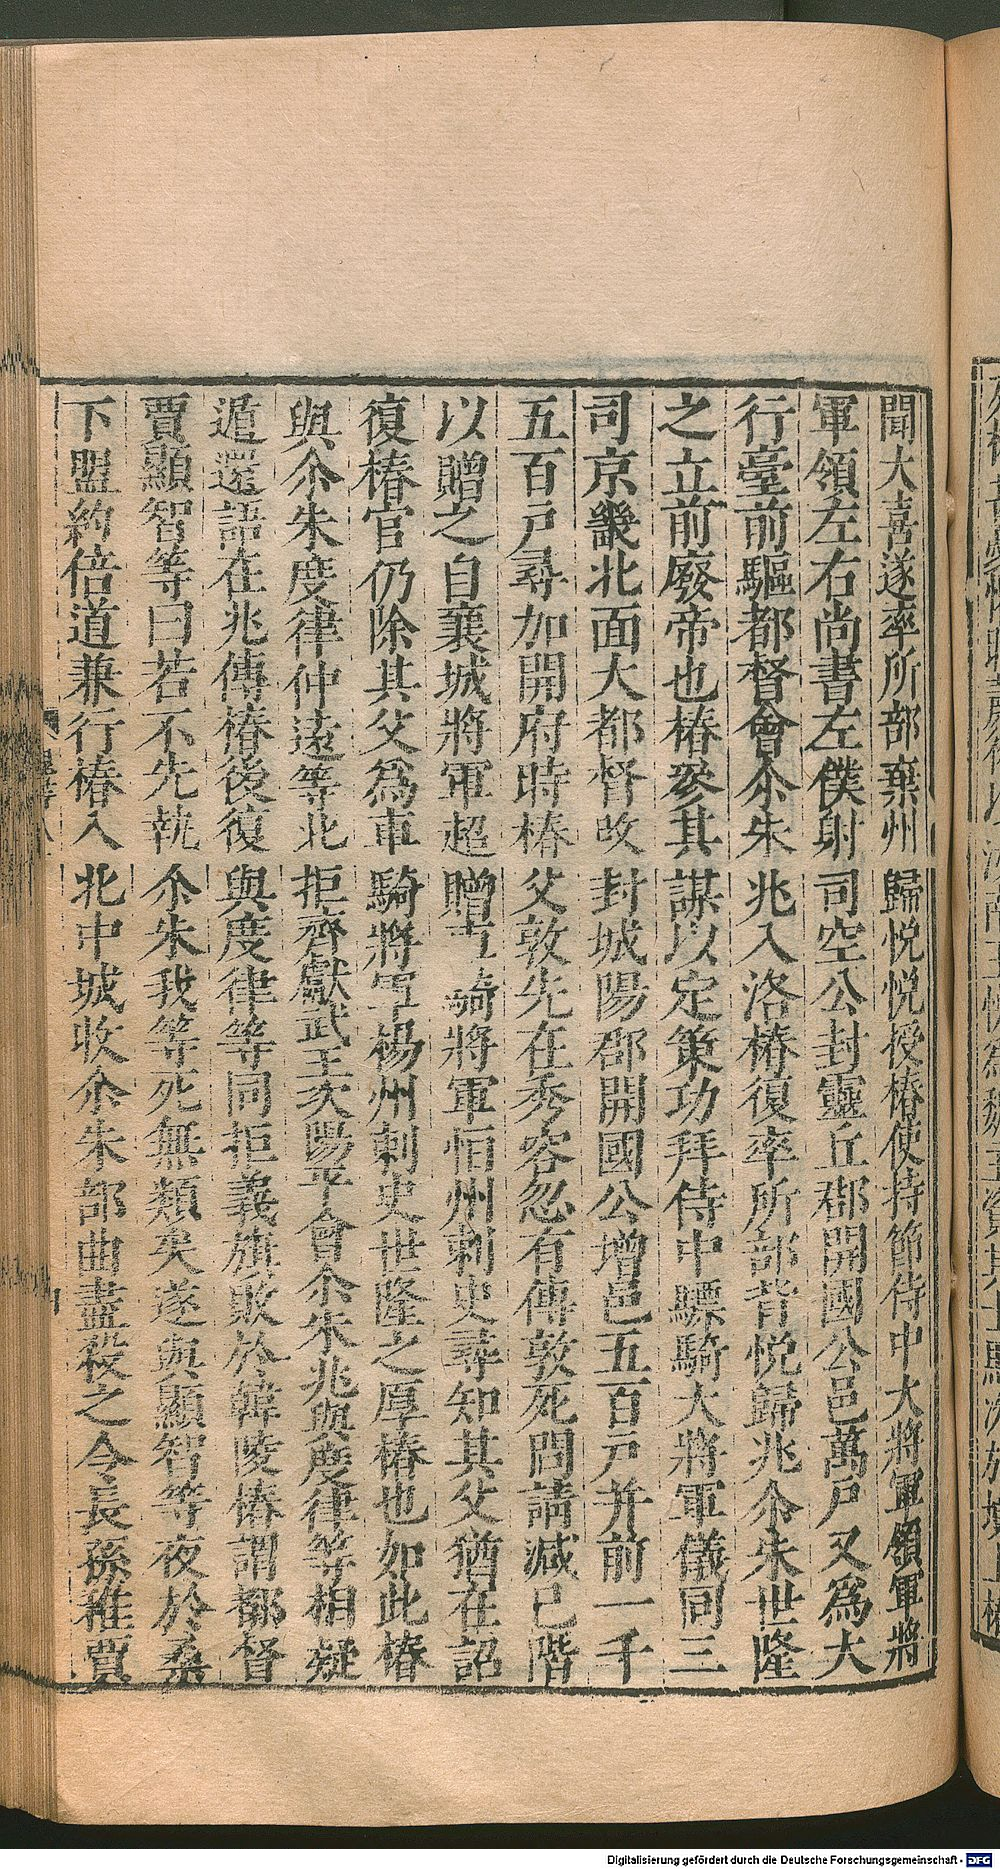 聞大喜遂率所部棄州歸悅悅授椿使持節侍中大將軍領軍將
軍領左右尚書左僕射司空公封靈丘郡開國公邑萬戶又為大
行臺前驅都督會尒朱兆入洛椿復率所部背悅歸兆尒朱世隆
之立前廢帝也椿參其謀以定策功拜侍中驃騎大將軍儀同三
司京畿北面大都督改封城陽郡開國公增邑五百戶并前一千
五百戶尋加開府時椿父敦先在秀容忽有傳敦死問請減己階
以贈之自襄城將軍超贈車騎將軍恒州刺史尋知其父猶在詔
復椿官仍除其父為車騎將軍楊州刺史世隆之厚椿也如此椿
與尒朱度律仲遠等北拒齊獻武王次陽平會尒朱兆與度律等相疑
遁還語在兆傳椿後復與度律等同拒義旗敗於韓陵椿謂都督
賈顯智等曰若不先執尒朱我等死無類矣遂與顯智等夜於桑
下盟約倍道兼行椿入北中城收尒朱部曲盡殺之令長孫稚賈
Digitalisierung gefördert durch die Deutsche Forschungsgemeinschaft - DFG